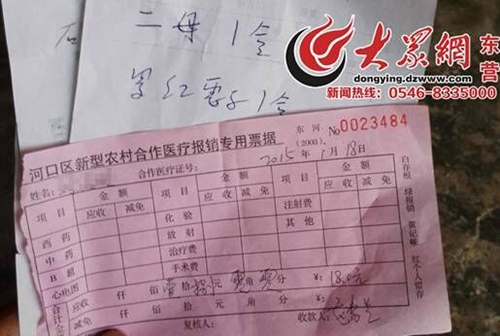 二母 1合
大眾網 东营
dongying.dzwww.com
新闻热线:0546-8335000
河口区新型农村合作医疗报销专用票据
东河(2008) No 0023484
姓名: 合作医疗证号: 2015年1月18日
项目 金额 项目 金额 注射费
应收 减免 应收 减免 其他
西药 化验
中药 放射
B超 治疗费
心电图 手术费
合计金额 应收 仟 佰 拾 元 零角 零分 ¥:18.0元
仟 佰 拾 元 角 分 ¥:
复核人: 收款人:
白存根 绿报销 黄记帐 红个人留存